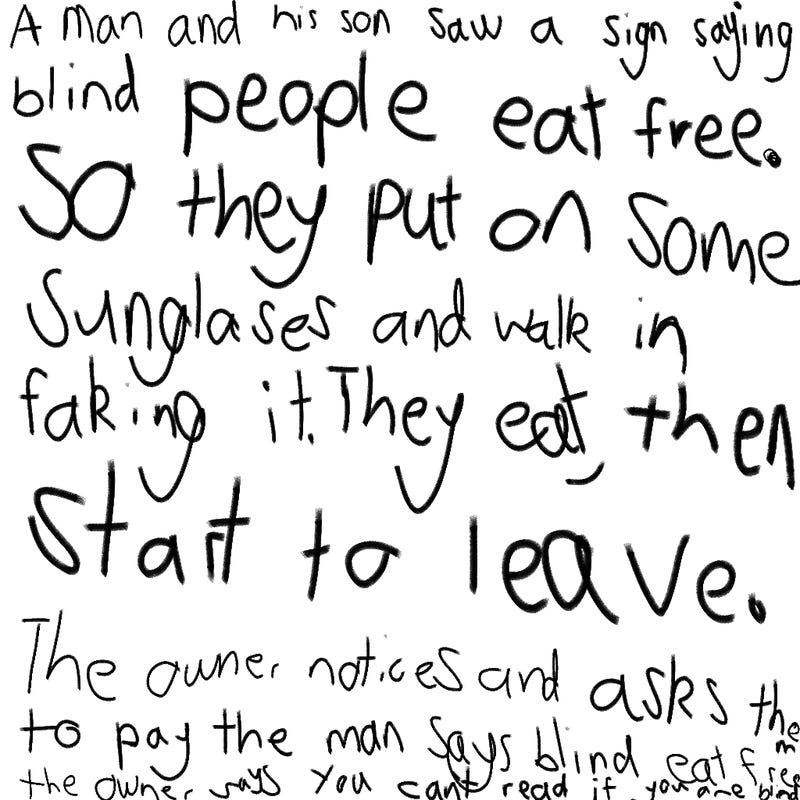 A man and his son saw a sign saying
blind people eat free.
So they put on some
Sunglases and walk in
faking it. They eat, then
start to leave.
The owner notices and asks them
to pay the man says blind eat free
the owner says you cant read if you are blind